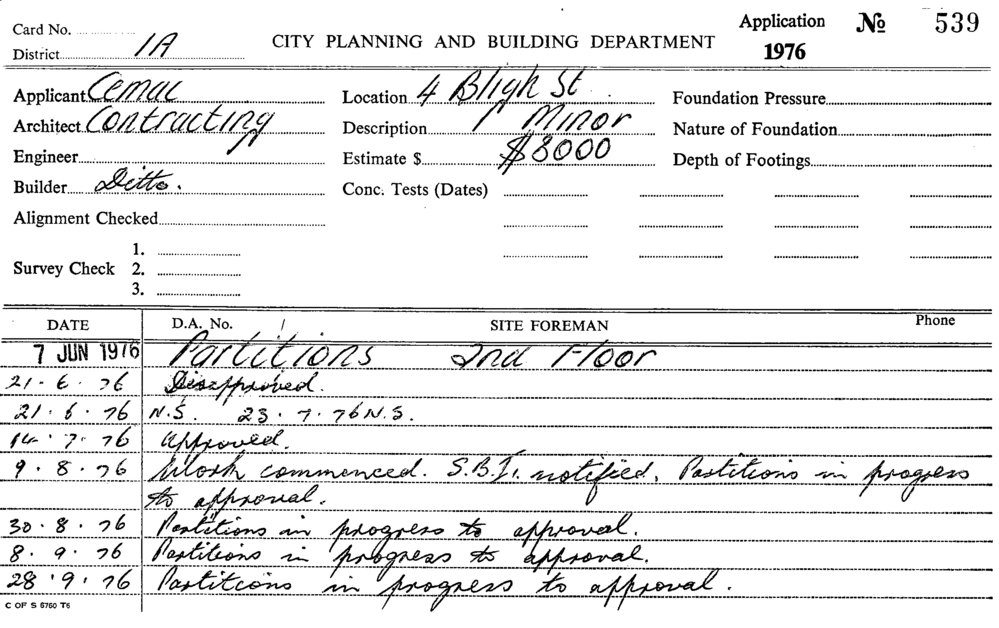 Card No.
Application No 539
District 1A
CITY PLANNING AND BUILDING DEPARTMENT
1976
Applicant Cemac
Location 4 Bligh St
Foundation Pressure
Architect Contracting
Description Minor
Nature of Foundation
Engineer
Estimate $ $8000
Depth of Footings
Builder Ditto.
Conc. Tests (Dates)
Alignment Checked
Survey Check
1.
2.
3.
DATE D.A. No. SITE FOREMAN Phone
7 JUN 1976 Partitions 2nd Floor
21. 6. 76 Disapproved.
21. 6. 76 N.S. 23. 7. 76 N.S.
14. 7. 76 Approved.
9. 8. 76 Work commenced. S.B.I. notified. Partitions in progress
to approval.
30. 8. 76 Partitions in progress to approval.
8. 9. 76 Partitions in progress to approval.
28. 9. 76 Partitions in progress to approval.
C OF S 6760 T6